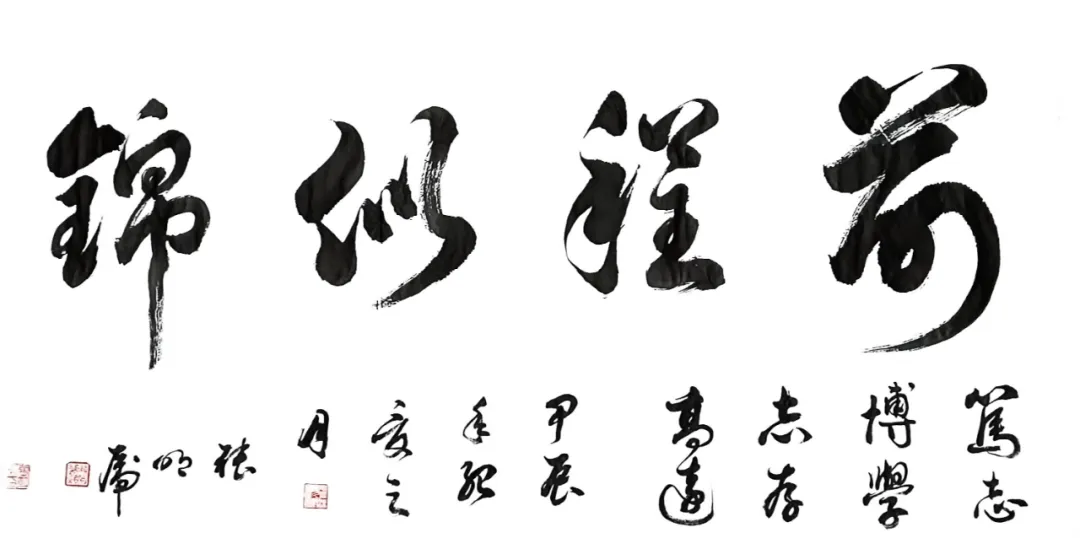 前程似錦
篤志
博學
志存
高遠
甲辰
年
夏之
月
明